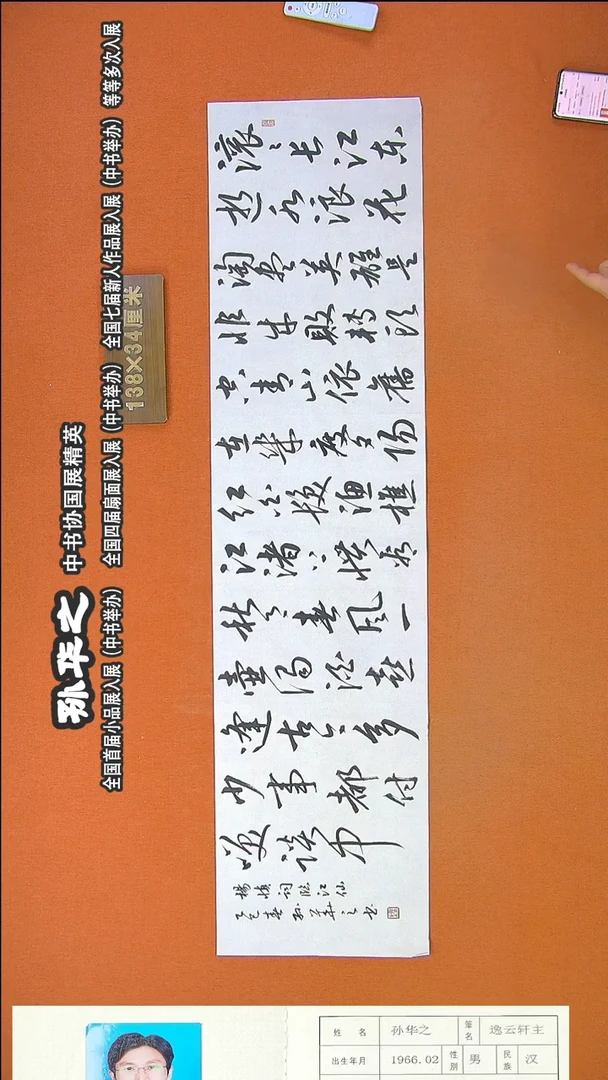 孙华之 中书协国展精英
全国首届小品展入展（中书举办） 全国四届扇面展入展（中书举办） 全国七届新人作品展入展（中书举办） 等等多次入展
138×34厘米
滚滚长江东
逝水浪花
淘尽英雄是
非成败转头
空青山依舊
在几度夕阳
红白发渔樵
江渚上惯看
秋月春风一
壶浊酒喜
逢古今多
少事都付
笑谈中
楊慎词临江仙
乙巳春孙華之书
姓 名 孙华之 笔名 逸云轩主
出生年月 1966.02 性别 男 民族 汉